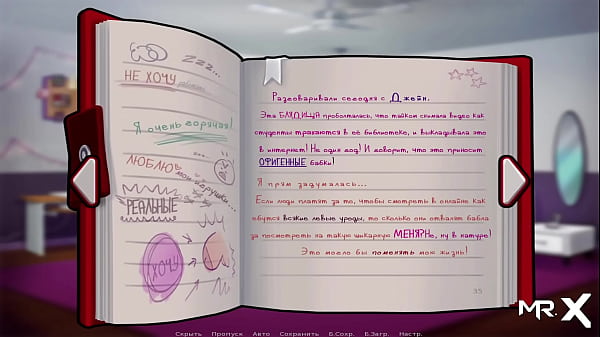 Zzz...
НЕ ХОЧУ работать
Я очень горячая!
ЛЮБЛЮ мои игрушки...
РЕАЛЬНЫЕ
ХОЧУ
Разговаривали сегодня с Джейн.
Эта БЛЯДИЩА проболталась, что тайком снимала видео как
студенты трахаются в её библиотеке, и выкладывала это
в интернет! Не один год! И говорит, что это приносит
ОФИГЕННЫЕ бабки!
Я прям задумалась...
Если люди платят за то, чтобы смотреть в онлайне как
ебутся всякие левые уроды, то сколько они отвалят бабла
за посмотреть на такую шикарную МЕНЯ?Не, ну в натуре!
Это могло бы поменять мою жизнь!
35
MR.X
Скрыть Пропуск Авто Сохранить Б.Сохр. Б.Загр. Настр.